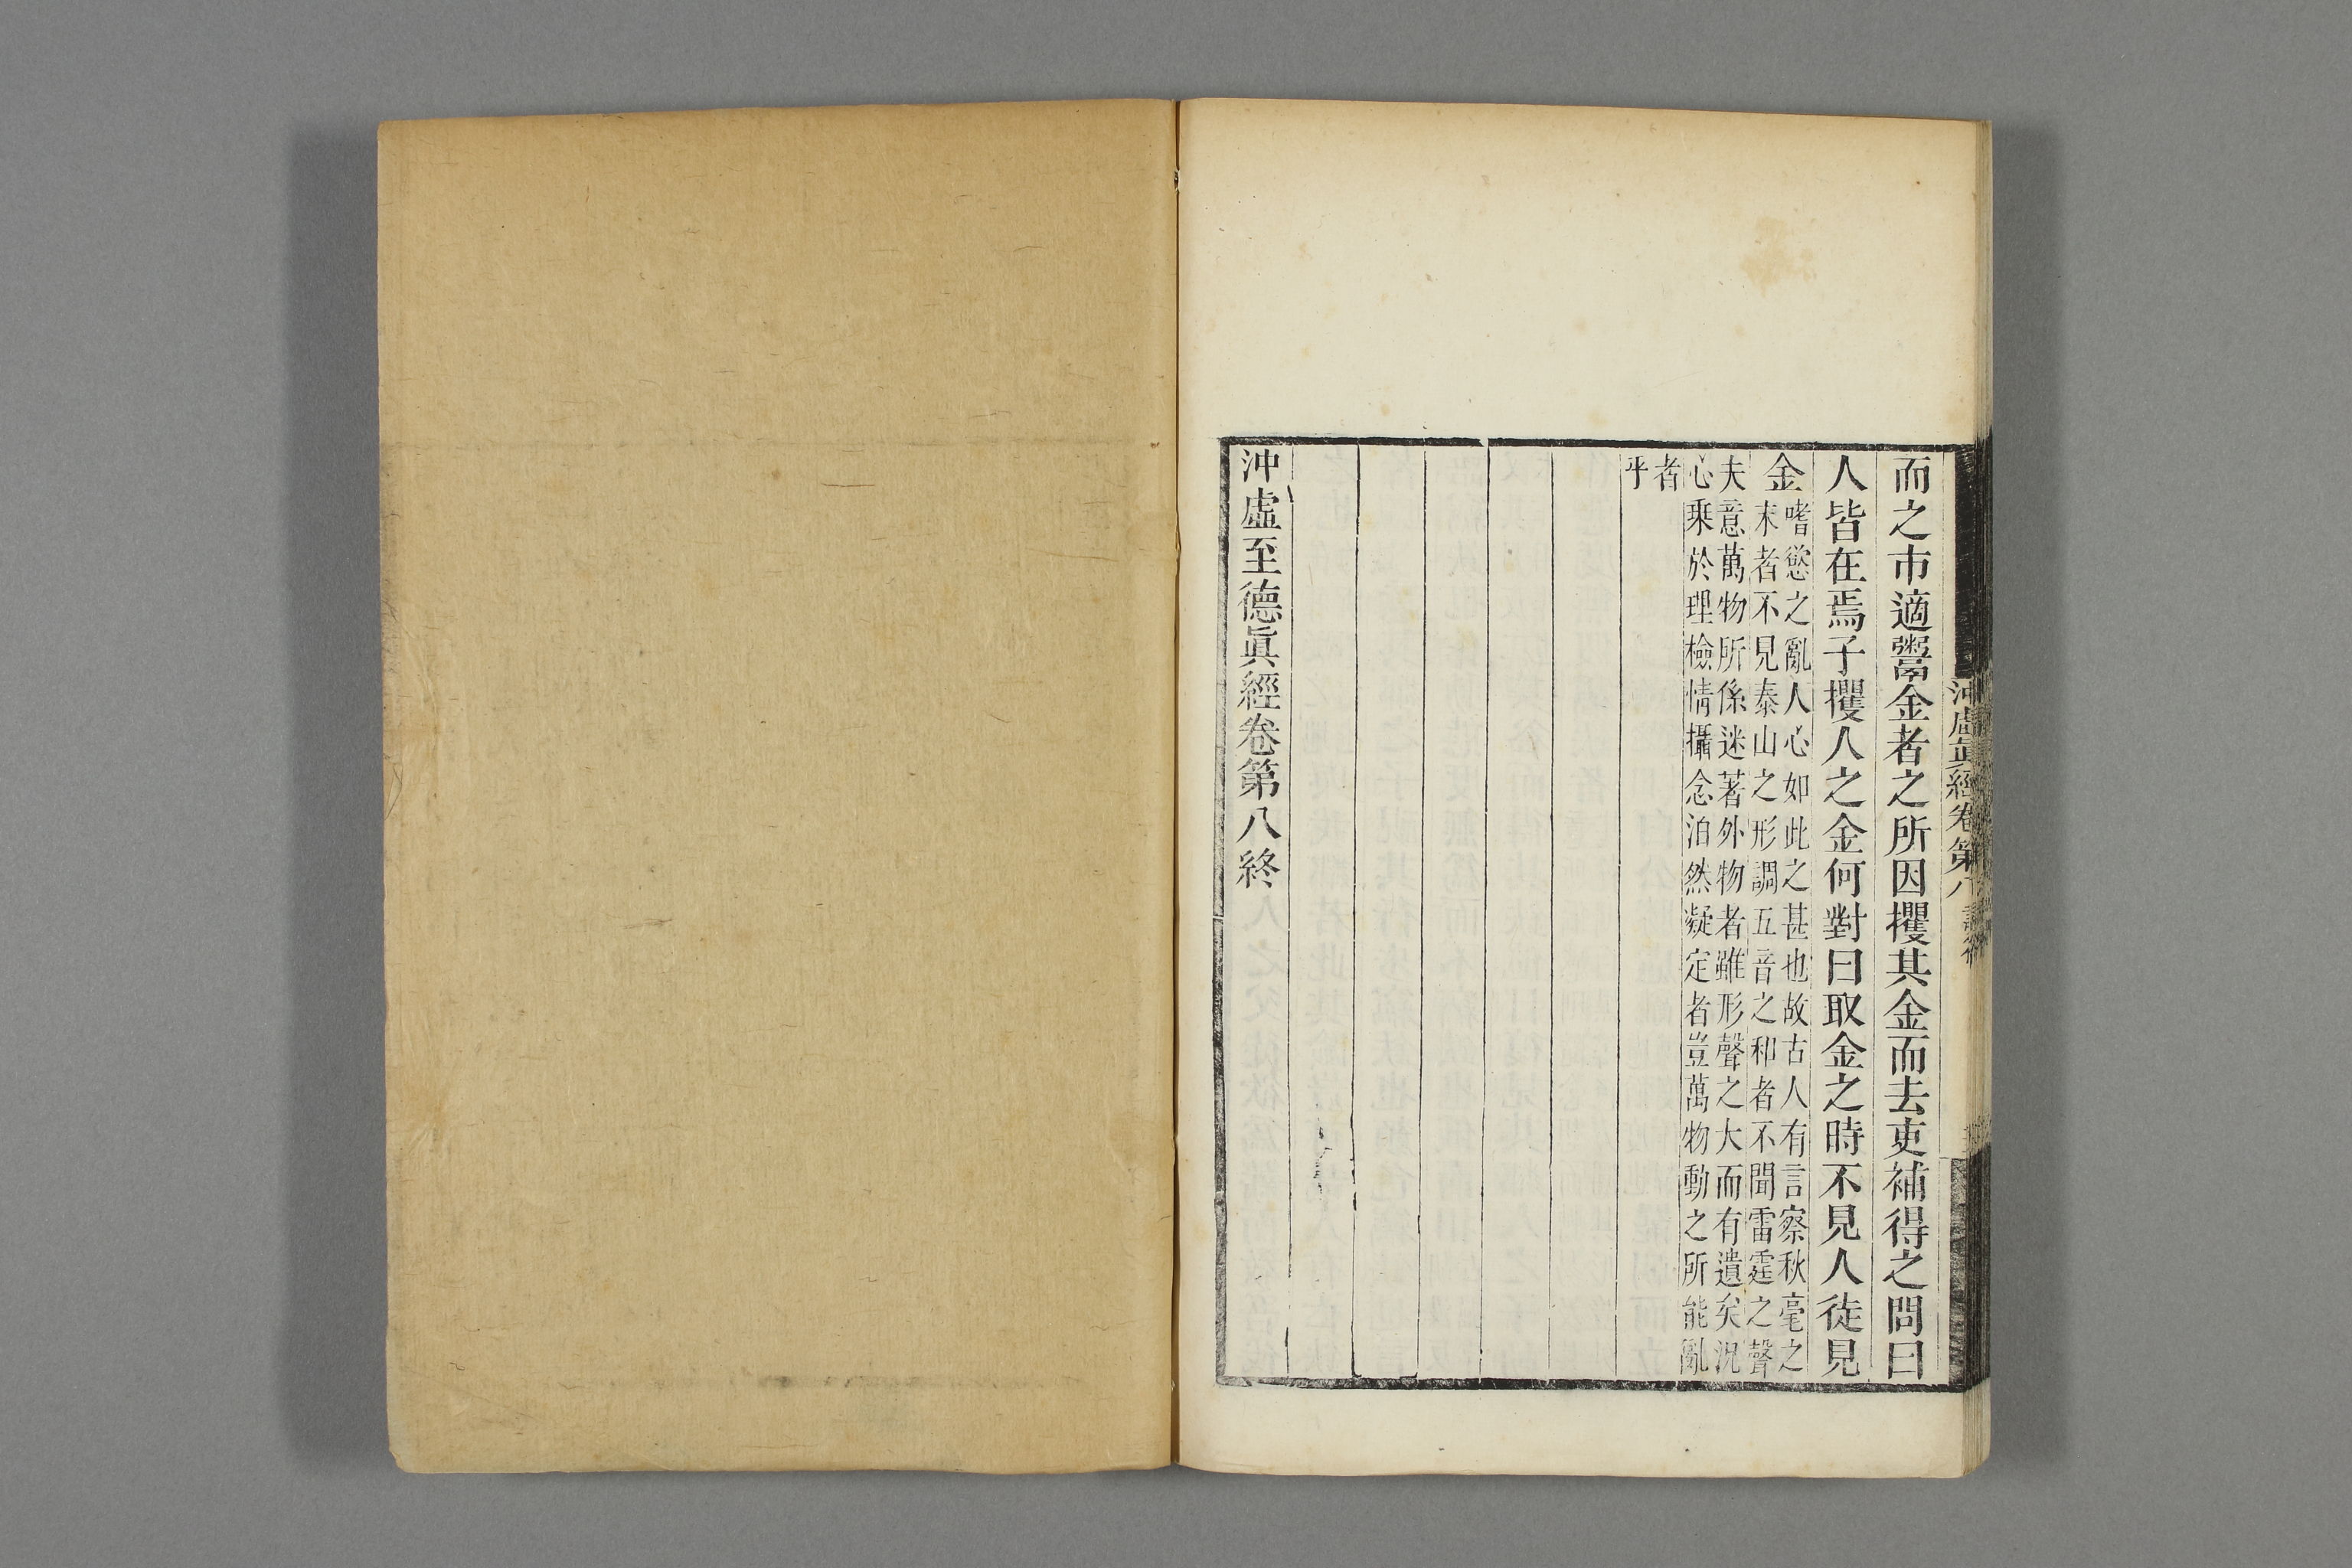 而之市適鬻金者之所因攫其金而去吏補得之問曰
人皆在焉子攫人之金何對曰取金之時不見人徒見
金
嗜慾之亂人心如此之甚也故古人有言察秋毫之
末者不見泰山之形調五音之和者不聞雷霆之聲
夫意萬物所係迷著外物者雖形聲之大而有遺矣況
心乘於理檢情攝念泊然凝定者豈萬物動之所能亂
者
乎
沖虛至德眞經卷第八終
沖虛眞經卷第八